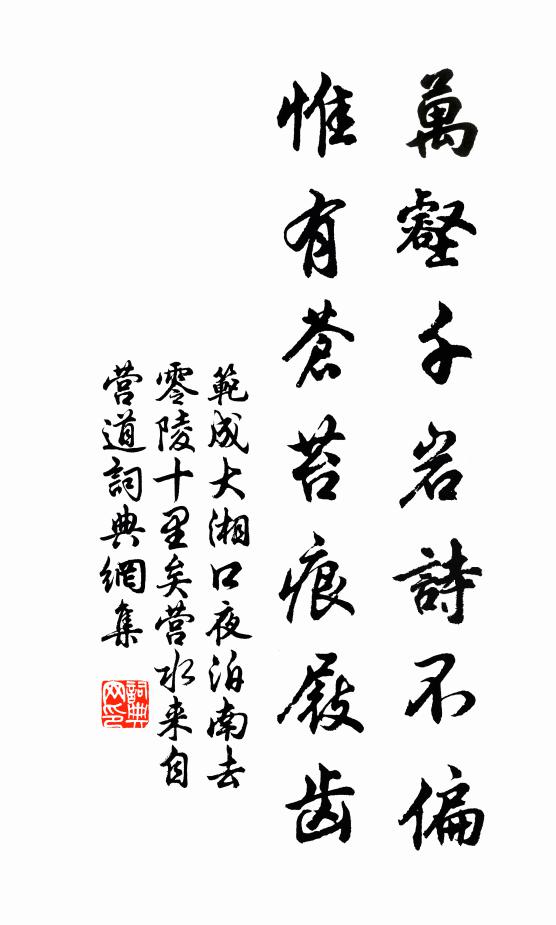 萬壑千岩詩不偏
惟有蒼苔痕屐齿
範成大湘口夜泊南去
零陵十里矣营水来自
营道詞典網集
詞典网印